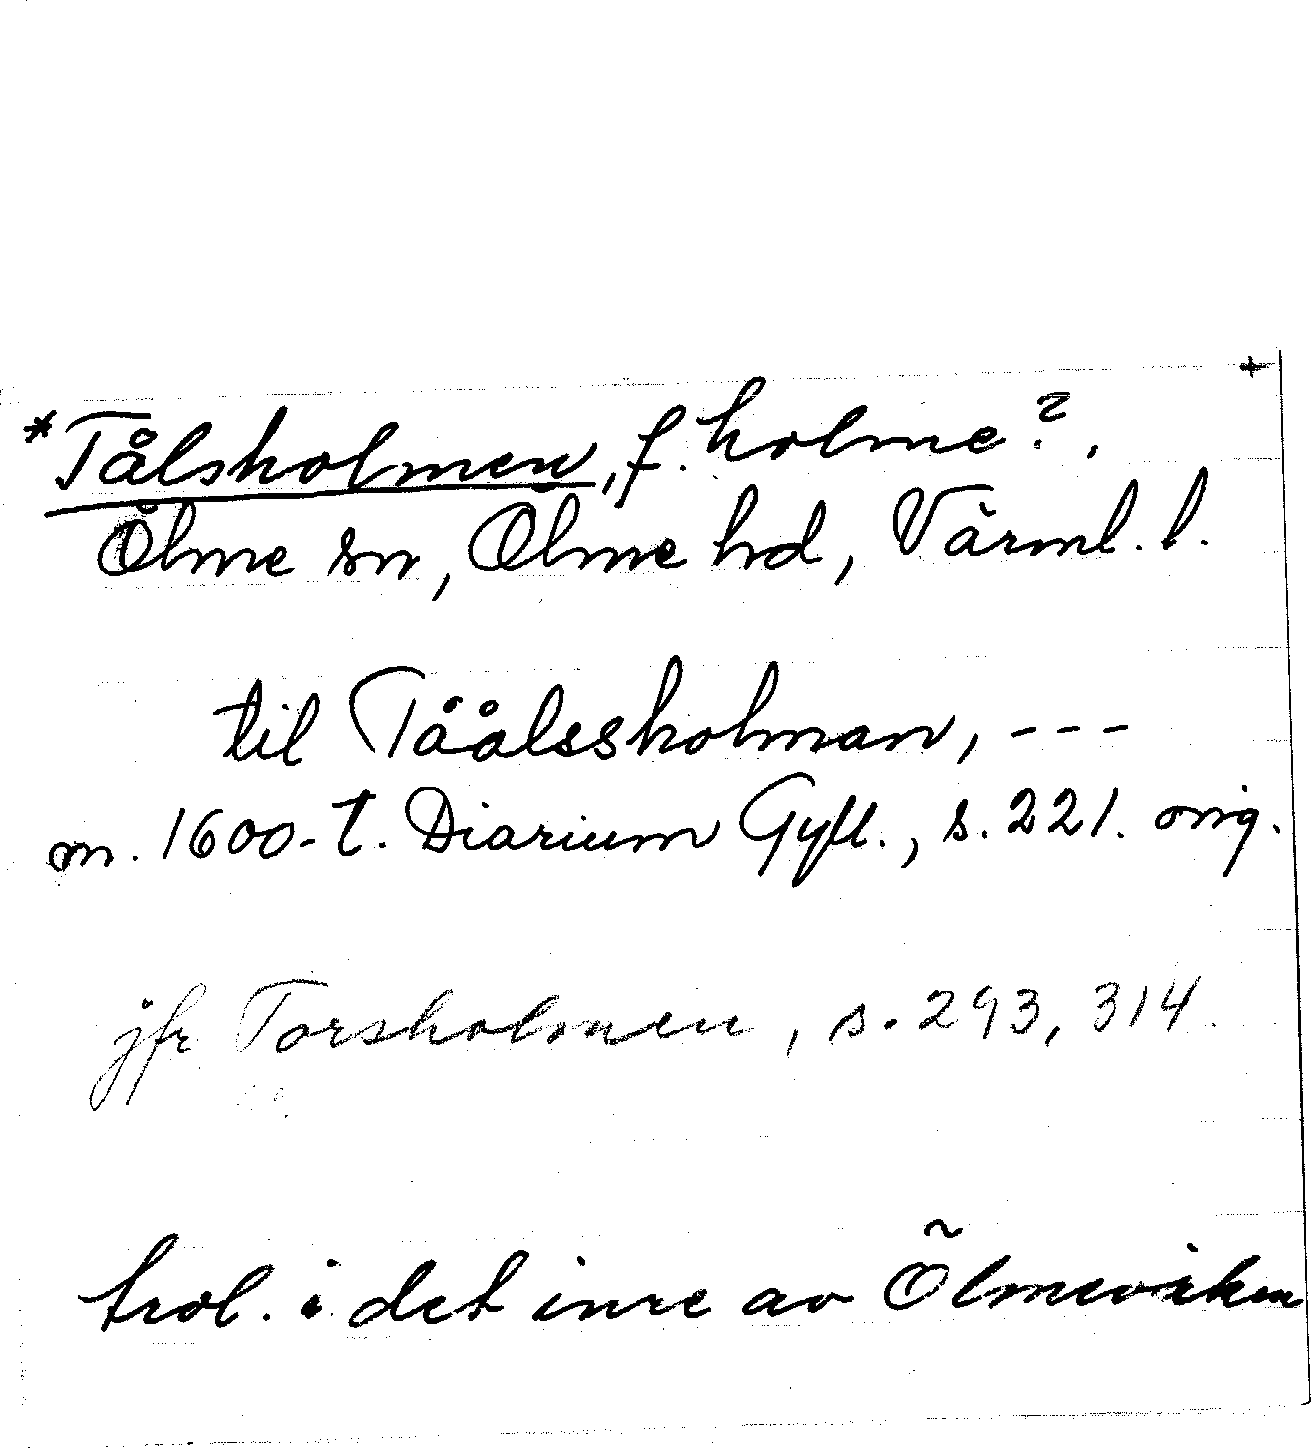 +
*Tålsholmen, f. holme?.
Ölme sn, Ölme hd, Värml. l.
til Tåålssholman, ---
m. 1600-t. Diarium Gyll., s. 221. orig.
jfr Torsholmen, s. 293, 314.
trol. i det inre av Ölmeviken